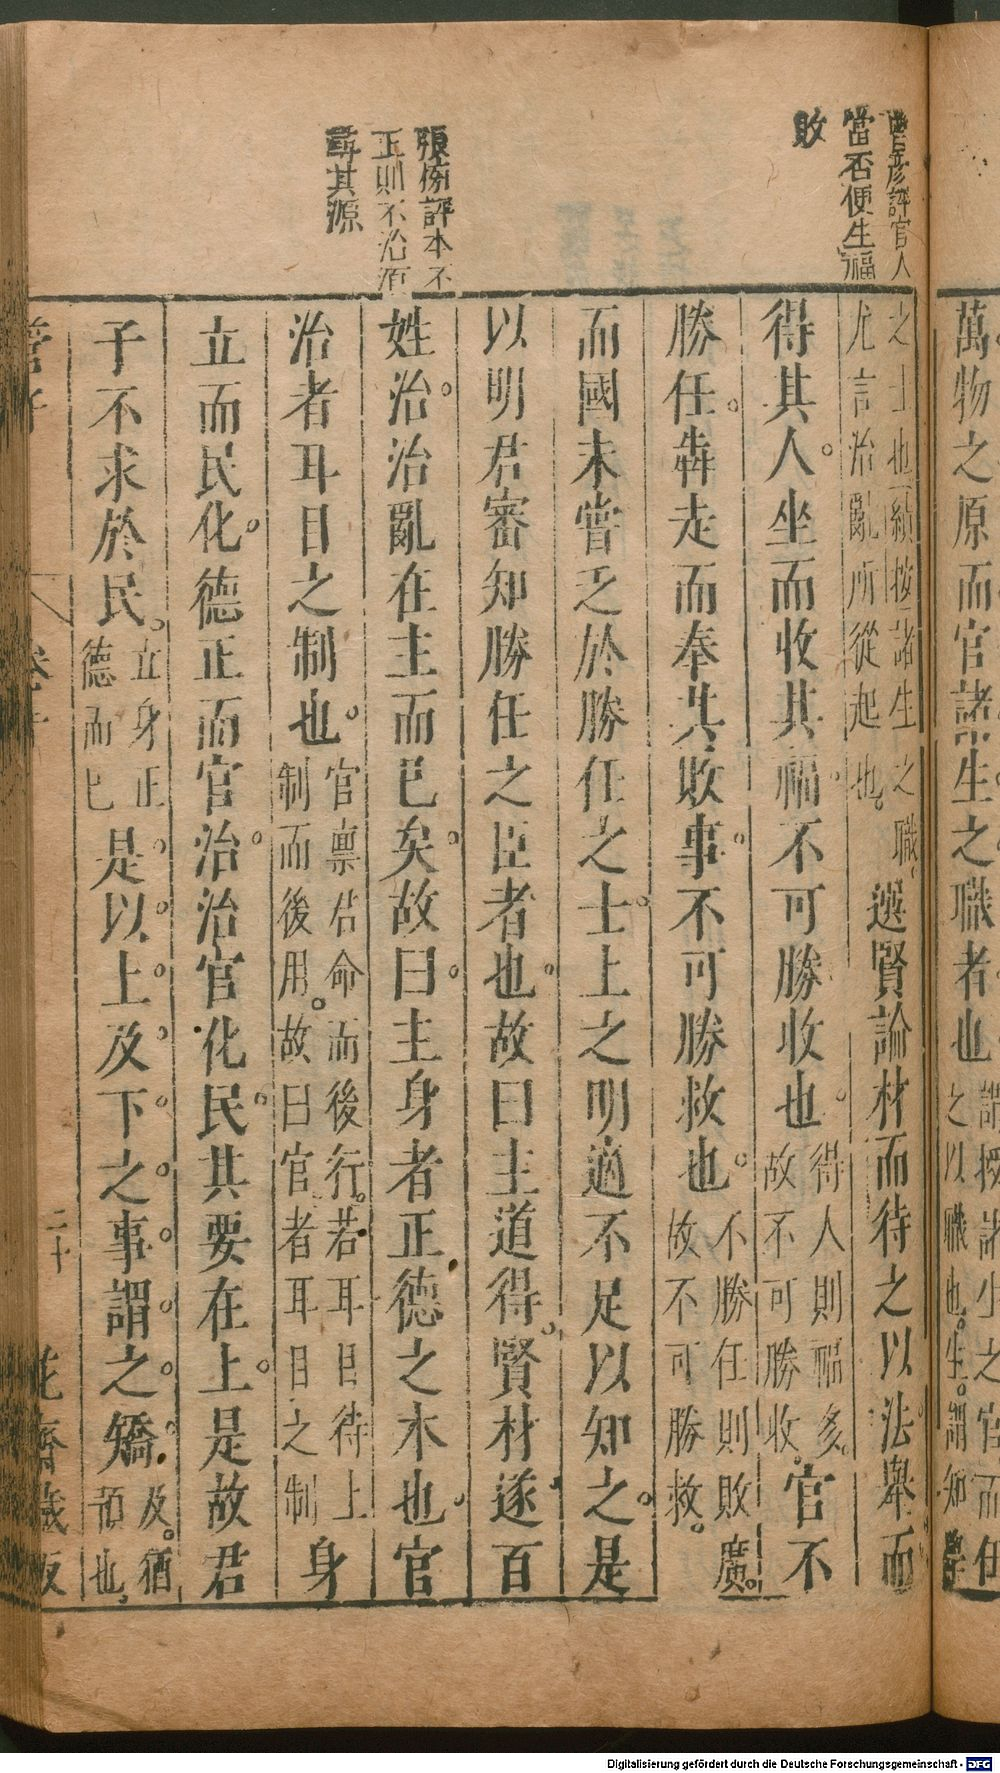 萬物之原而官諸生之職者也
之以職也。生。謂知
評官人
當否便生福
敗
之士也績按諸生之職。
尤言治亂所從起也。選賢論材而待之以法舉而
得其人。坐而收其福。不可勝收也。得人則福多。
故不可勝收。官不
勝任。犇走而奉其敗事。不可勝救也。不勝任則敗廣。
故不可勝救。
而國未嘗乏於勝任之士。上之明適不足以知之。是
以明君審知勝任之臣者也。故曰主道得。賢材遂。百
張榜評本不
正則不治須
尋其源
姓治。治亂在主而已矣。故曰。主身者正德之木也。官
治者耳目之制也。官禀君命而後行。若耳目待上
制而後用。故曰官者耳目之制身
立而民化。德正而官治。治官化民。其要在上。是故君
子不求於民。立身正
德而已是以上及下之事謂之矯。及。猶
預也。
管子
二十
花齋藏板
Digitalisierung gefördert durch die Deutsche Forschungsgemeinschaft - DFG